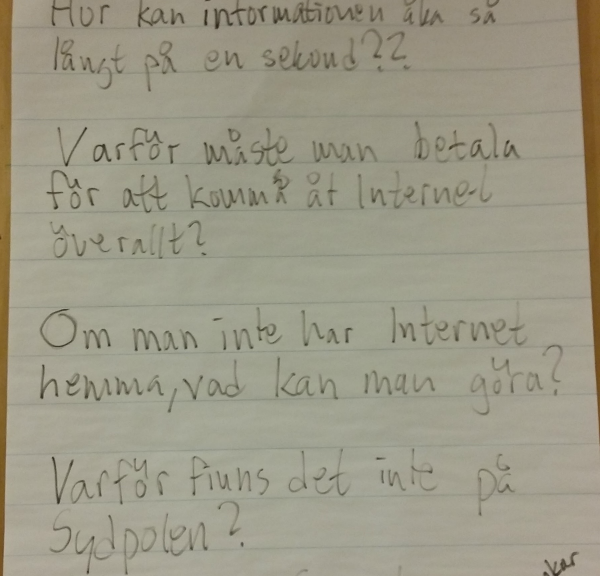 Hur kan informationen åka så
långt på en sekond??
Varför måste man betala
för att komma åt Internet
överallt?
Om man inte har Internet
hemma, vad kan man göra?
Varför finns det inte på
Sydpolen?